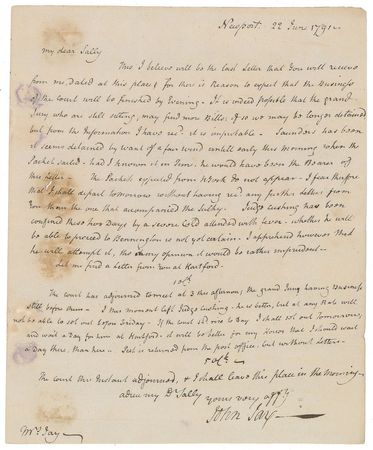 Newport. 22 June 1791—
my dear Sally
This I believe will be the last Letter that you will receive
from me, Dated at this place; for there is Reason to expect that the Business
of the Court will be finished by Evening. It is indeed possible that the grand
Jury who are still sitting, may find more Bills; if so we may be longer detained
but from the Information I have recd. it is improbable. Saunders has been
it seems detained by want of a fair wind untill early this morning when the
Packet sailed. had I known it in Time he would have been the Bearer of
this Letter. The Packets expected from NYork do not appear. I fear therefore
that I shall depart tomorrow without having recd any further Letters from
you than the one that accompanied the Sulky. Judge Cushing has been
confined these two Days by a severe Cold attended with fever. whether he will
be able to proceed to Bennington is not yet certain. I apprehend however that
he will attempt it, tho in my opinion it would be rather imprudent.
Let me find a Letter from you at Hartford.
10 oCk
The Court has adjourned to meet at 3 this afternoon, the grand Jury having Business
still before them. I this moment left Judge Cushing. he is better, but at any Rate will
not be able to set out before Friday. If the Court shd rise to Day, I shall set out Tomorrow,
and wait a Day for him at Hartford. it will be better for my Horses that I should wait
a Day there, than here. is returned from the post office, but without Letters.
5 oClk
The Court this Instant adjourned, & I shall leave this place in the Morning
adieu my Dr Sally yours very affy
John Jay
Mrs. Jay